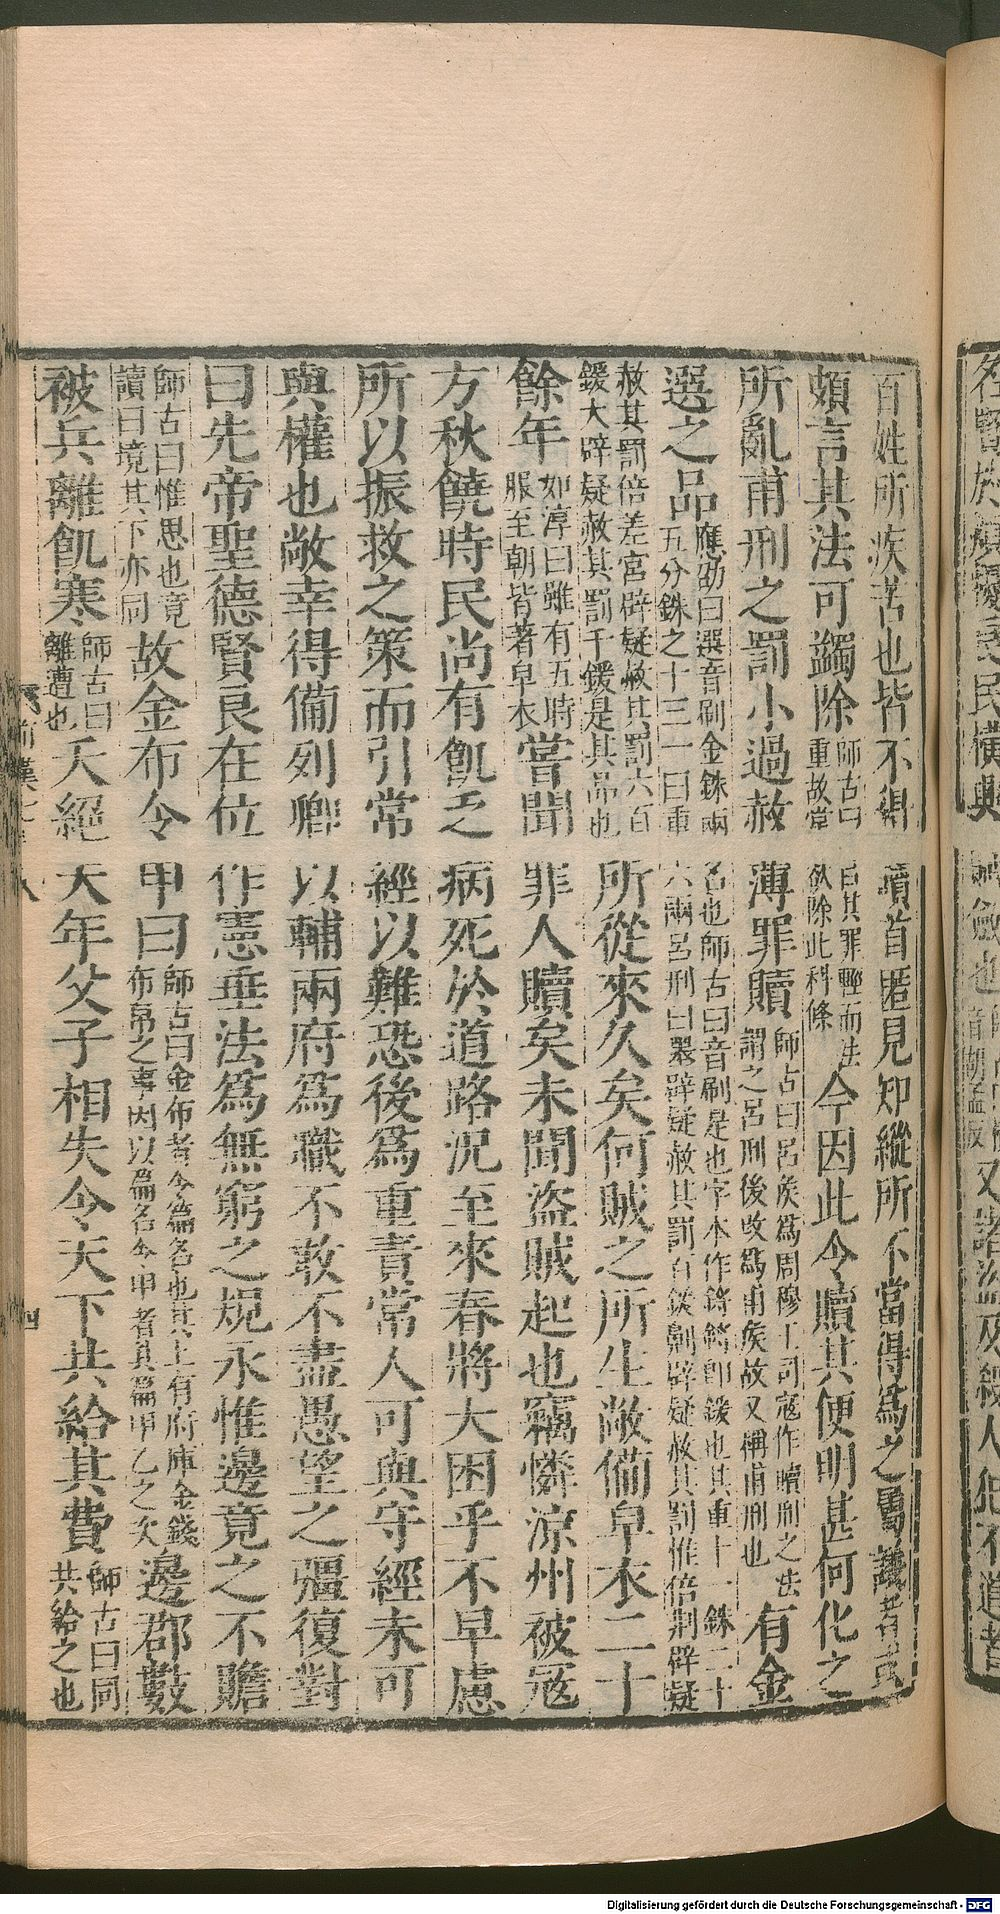 百姓所疾苦也皆不得贖首匿見知縱所不當得爲之屬議者或
頗言其法可蠲除師古曰重故常自其罪輕而法欲除此科條今因此令贖其便明甚何化之
所亂甫刑之罰小過赦薄罪贖師古曰呂侯爲周穆王司寇作贖刑之法謂之呂刑後改爲甫侯故又稱甫刑也有金
選之品應劭曰選音刷金銖兩名也師古曰音刷是也字本作鋝鋝卽鍰也其重十一銖二十五分銖之十三一曰重六兩呂刑曰墨辟疑赦其罰百鍰劓辟疑赦其罰惟倍剕辟疑
赦其罰倍差宮辟疑赦其罰六百鍰大辟疑赦其罰千鍰是其品也所從來久矣何賊之所生敞備皁衣二十
餘年如淳曰雖有五時服至朝皆著皁衣嘗聞罪人贖矣未聞盜賊起也竊憐涼州被寇
方秋饒時民尚有飢乏病死於道路況至來春將大困乎不早慮
所以振救之策而引常經以難恐後爲重責常人可與守經未可
與權也敞幸得備列卿以輔兩府爲職不敢不盡愚望之彊復對
曰先帝聖德賢良在位作憲垂法爲無窮之規永惟邊竟之不贍
師古曰惟思也竟讀曰境其下亦同故金布令甲曰師古曰金布者令篇名也其上有府庫金錢布帛之事因以篇名令甲者其篇甲乙之次邊郡數
被兵離飢寒師古曰離遭也夭絕天年父子相失令天下共給其費師古曰同共給之也
前漢
四